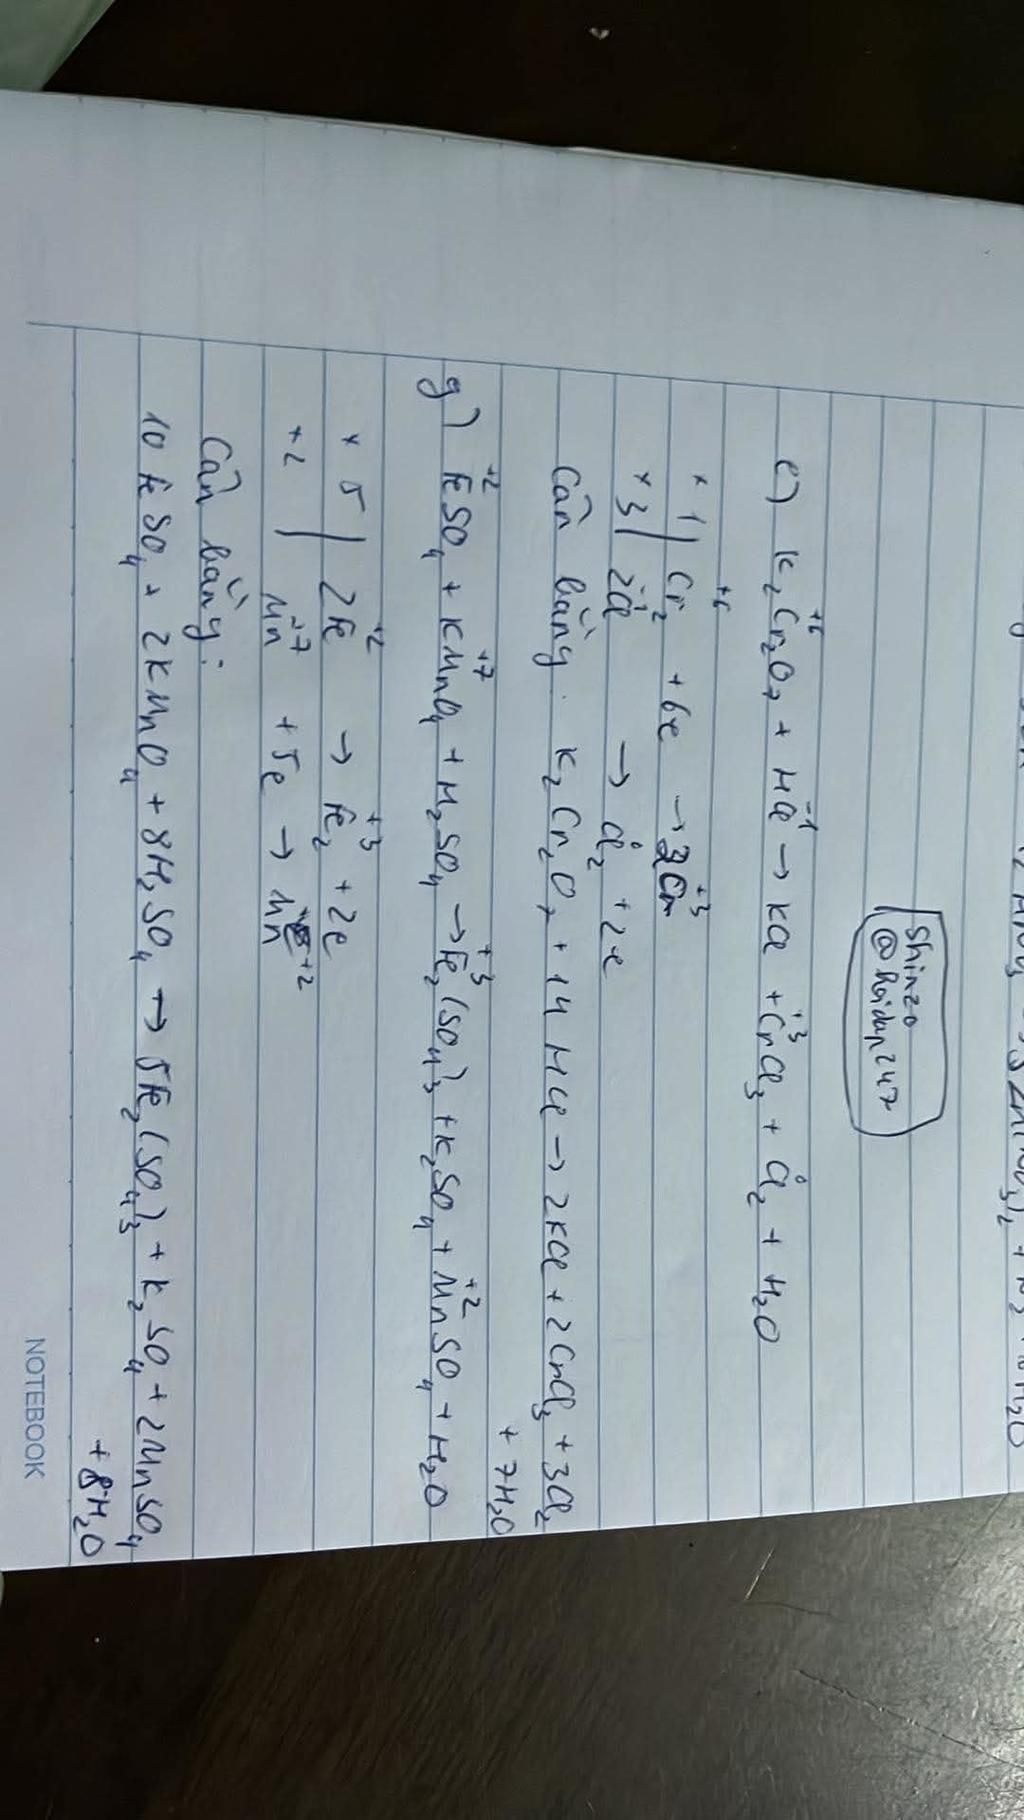 Shinzo
@hoidap247
e) K₂Cr₂⁺⁶O₇ + HCl⁻¹ → KCl + Cr⁺³Cl₃ + Cl₂⁰ + H₂O
×1 | Cr₂⁺⁶ + 6e → 2Cr⁺³
×3 | 2Cl⁻¹ → Cl₂⁰ + 2e
Cân bằng: K₂Cr₂O₇ + 14 HCl → 2KCl + 2CrCl₃ + 3Cl₂
+ 7H₂O
g) Fe⁺²SO₄ + KMn⁺⁷O₄ + H₂SO₄ → Fe₂⁺³(SO₄)₃ + K₂SO₄ + Mn⁺²SO₄ + H₂O
× 5 | 2Fe⁺² → Fe₂⁺³ + 2e
×2 | Mn⁺⁷ + 5e → Mn⁺²
Cân bằng:
10 FeSO₄ + 2KMnO₄ + 8H₂SO₄ → 5Fe₂(SO₄)₃ + K₂SO₄ + 2MnSO₄
+ 8H₂O
NOTEBOOK